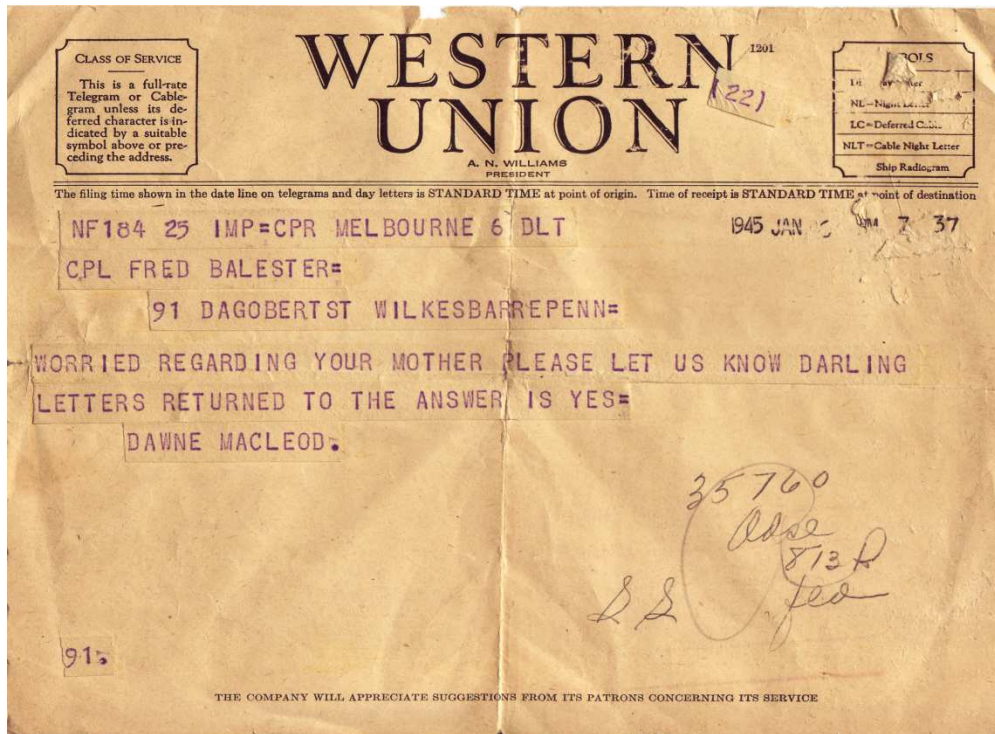 CLASS OF SERVICE
This is a full-rate
Telegram or Cable-
gram unless its de-
ferred character is in-
dicated by a suitable
symbol above or pre-
ceding the address.
WESTERN
UNION
1201
(22)
A. N. WILLIAMS
PRESIDENT
NL=Night Letter
LC=Deferred Cable
NLT=Cable Night Letter
Ship Radiogram
The filing time shown in the date line on telegrams and day letters is STANDARD TIME at point of origin. Time of receipt is STANDARD TIME at point of destination
NF184 25 IMP=CPR MELBOURNE 6 DLT
1945 JAN 7 37
CPL FRED BALESTER=
91 DAGOBERTST WILKESBARREPENN=
WORRIED REGARDING YOUR MOTHER PLEASE LET US KNOW DARLING
LETTERS RETURNED TO THE ANSWER IS YES=
DAWNE MACLEOD.
35760
813
91.
THE COMPANY WILL APPRECIATE SUGGESTIONS FROM ITS PATRONS CONCERNING ITS SERVICE